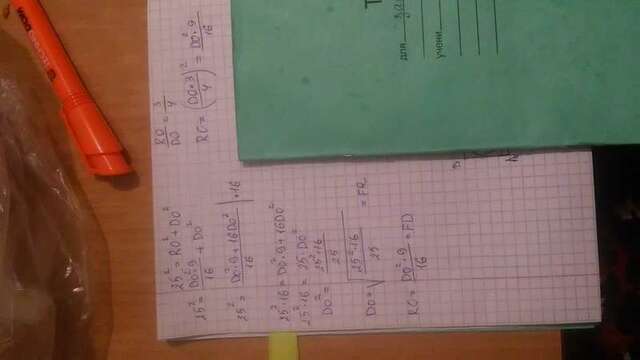 25² = RO² + DO²
25² = DO²·9/16 + DO²
25² = DO²·9 + 16DO²/16 | ·16
25²·16 = DO²·9 + 16DO²
25²·16 = 25·DO²
DO² = 25²·16/25
DO = √(25²·16/25) = FR
RO = DO²·9/16 = FD
RO/DO = 3/4
RO = (DO·3/4)² = DO²·9/16
для
учени